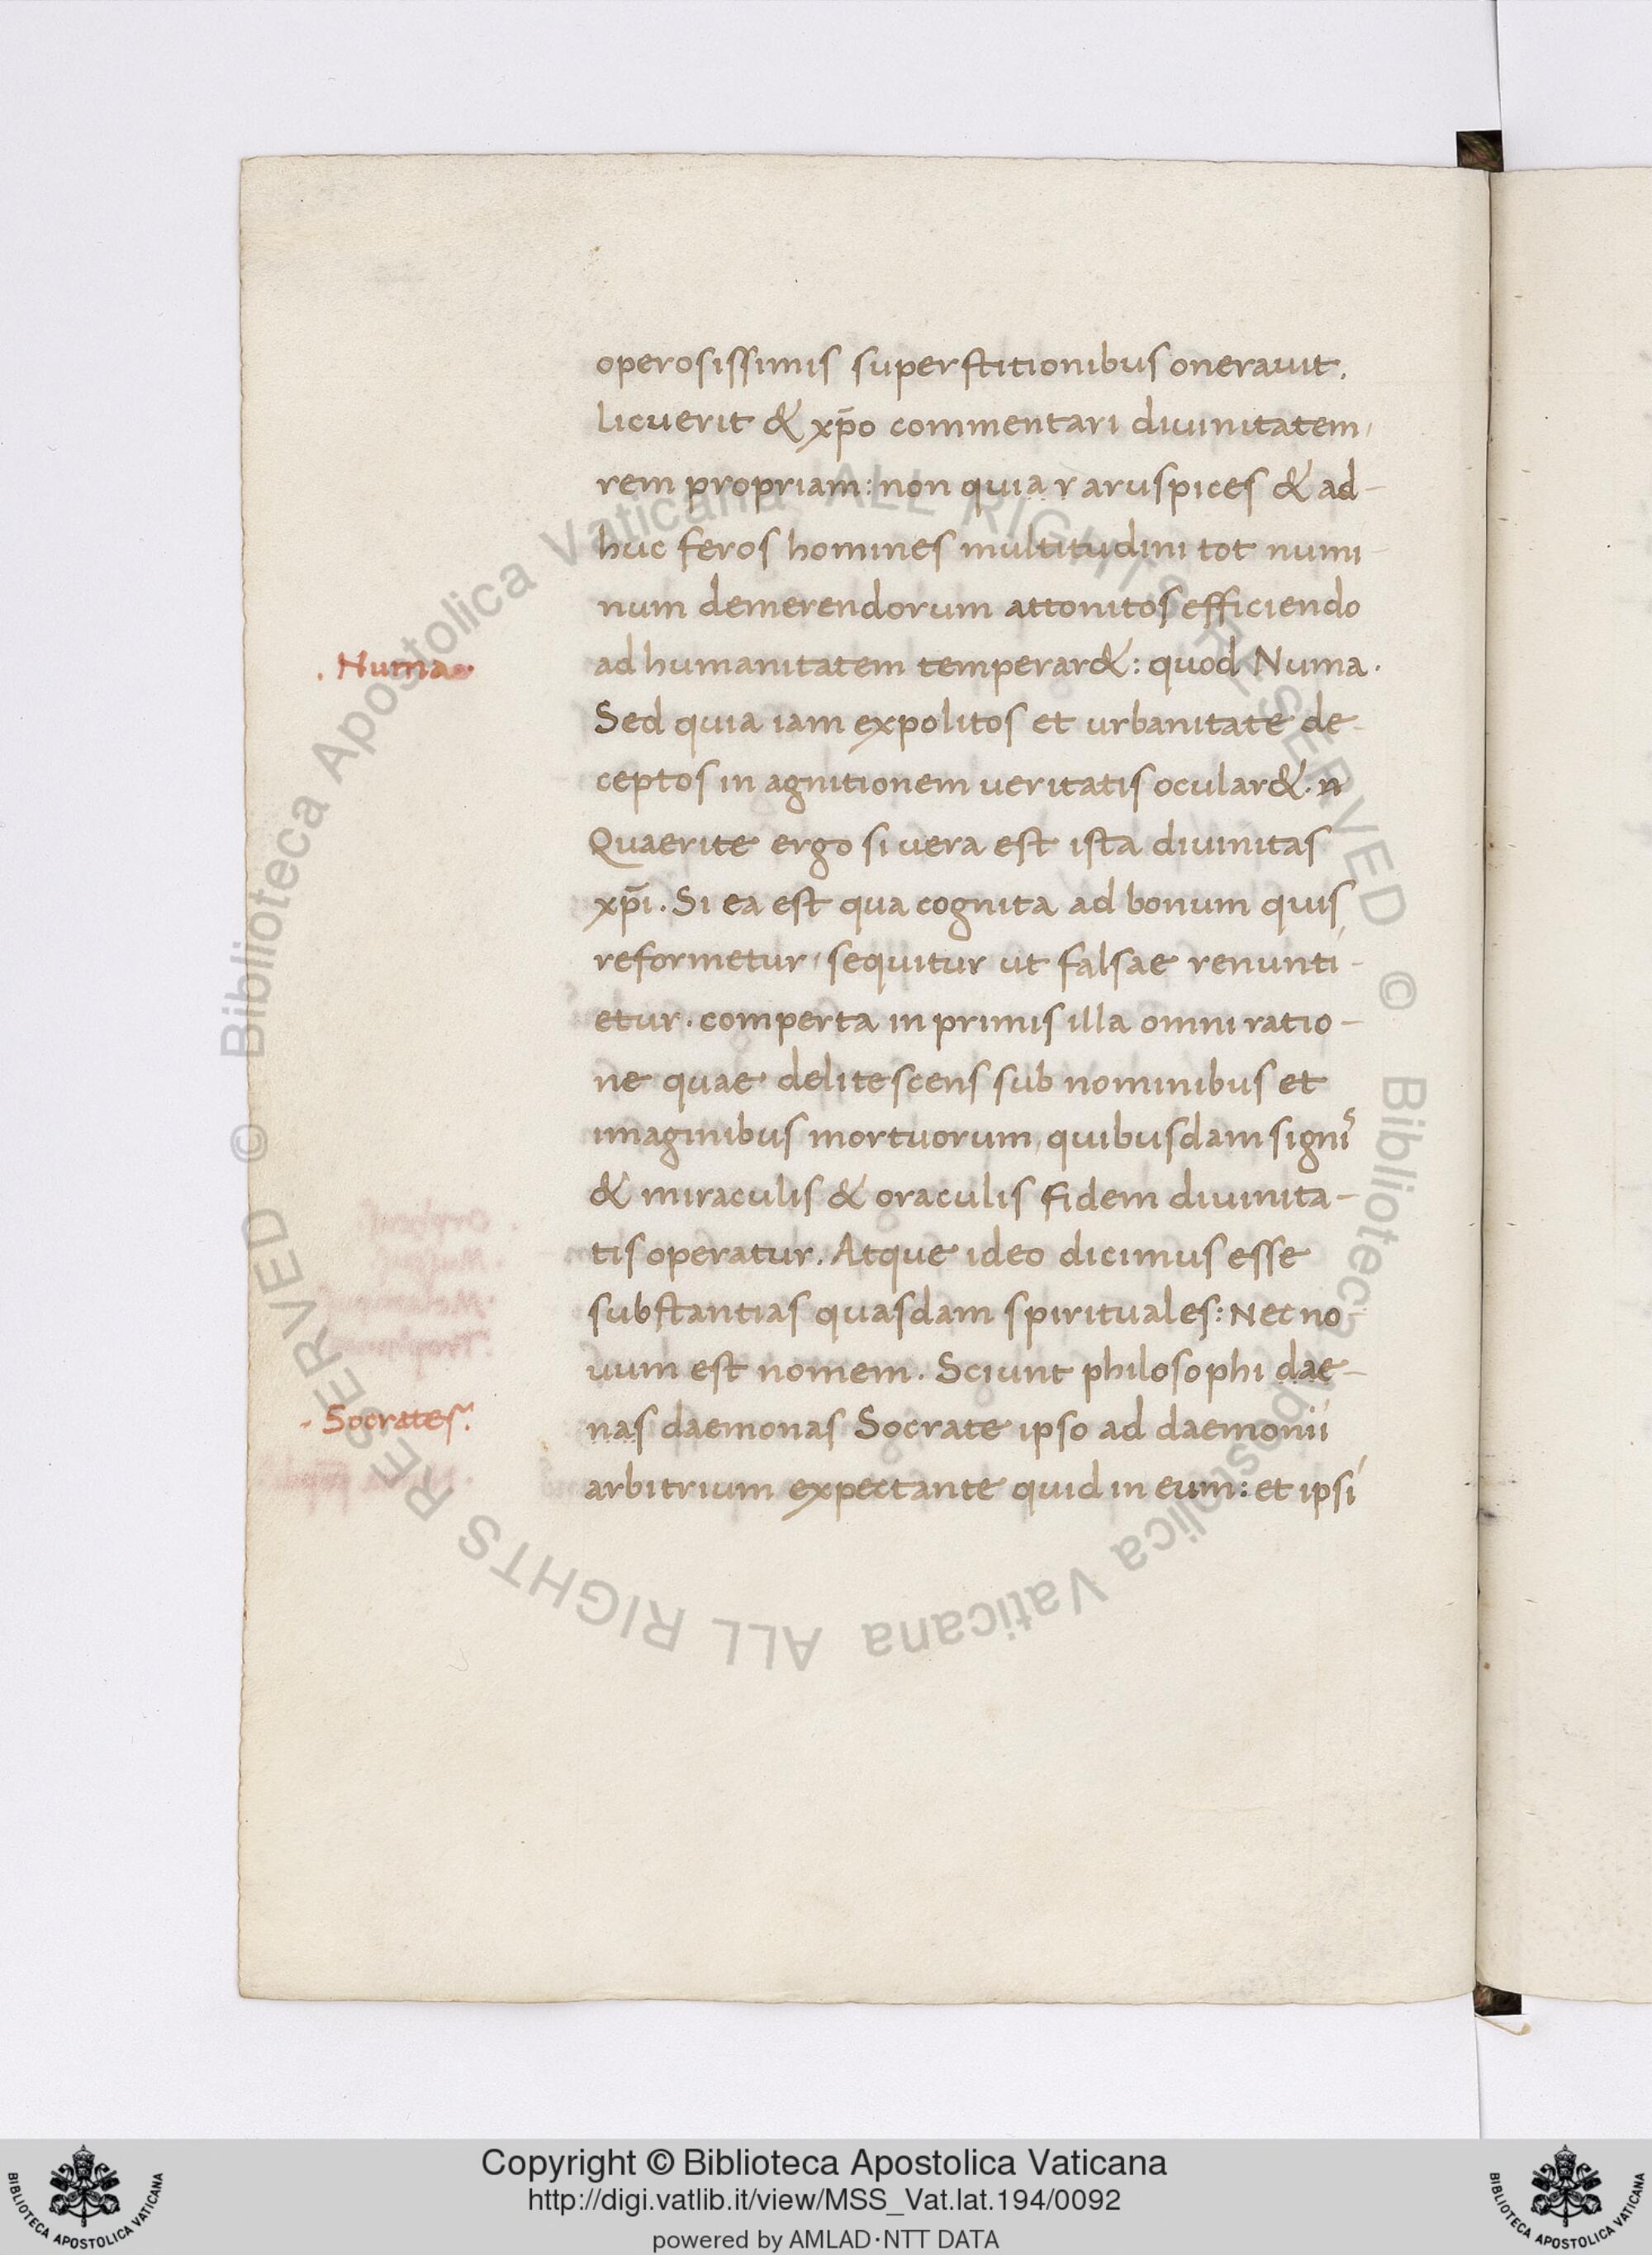 operosissimis superstitionibus onerauit.
licuerit & xp̄o commentari diuinitatem,
rem propriam: non quia r aruspices & ad-
huc feros homines multitudini tot numi-
num demerendorum attonitos efficiendo
. Numa. ad humanitatem temperar&: quod Numa.
Sed quia iam expolitos et urbanitate de-
ceptos in agnitionem ueritatis ocular&. n
Quaerite ergo si uera est ista diuinitas
xp̄i. Si ea est qua cognita ad bonum quis
reformetur, sequitur ut falsae renunti-
etur. comperta in primis illa omni ratio-
ne quae delitescens sub nominibus et
imaginibus mortuorum, quibusdam signis
& miraculis & oraculis fidem diuinita-
tis operatur. Atque ideo dicimus esse
substantias quasdam spirituales: Nec no-
uum est nomem. Sciunt philosophi dae-
. Socrates. nas daemonas Socrate ipso ad daemonii
arbitrium expectante quid in eum: et ipsi
© Biblioteca Apostolica Vaticana ALL RIGHTS RESERVED
© Biblioteca Apostolica Vaticana ALL RIGHTS RESERVED
Copyright © Biblioteca Apostolica Vaticana
http://digi.vatlib.it/view/MSS_Vat.lat.194/0092
powered by AMLAD·NTT DATA
BIBLIOTECA APOSTOLICA VATICANA
BIBLIOTECA APOSTOLICA VATICANA